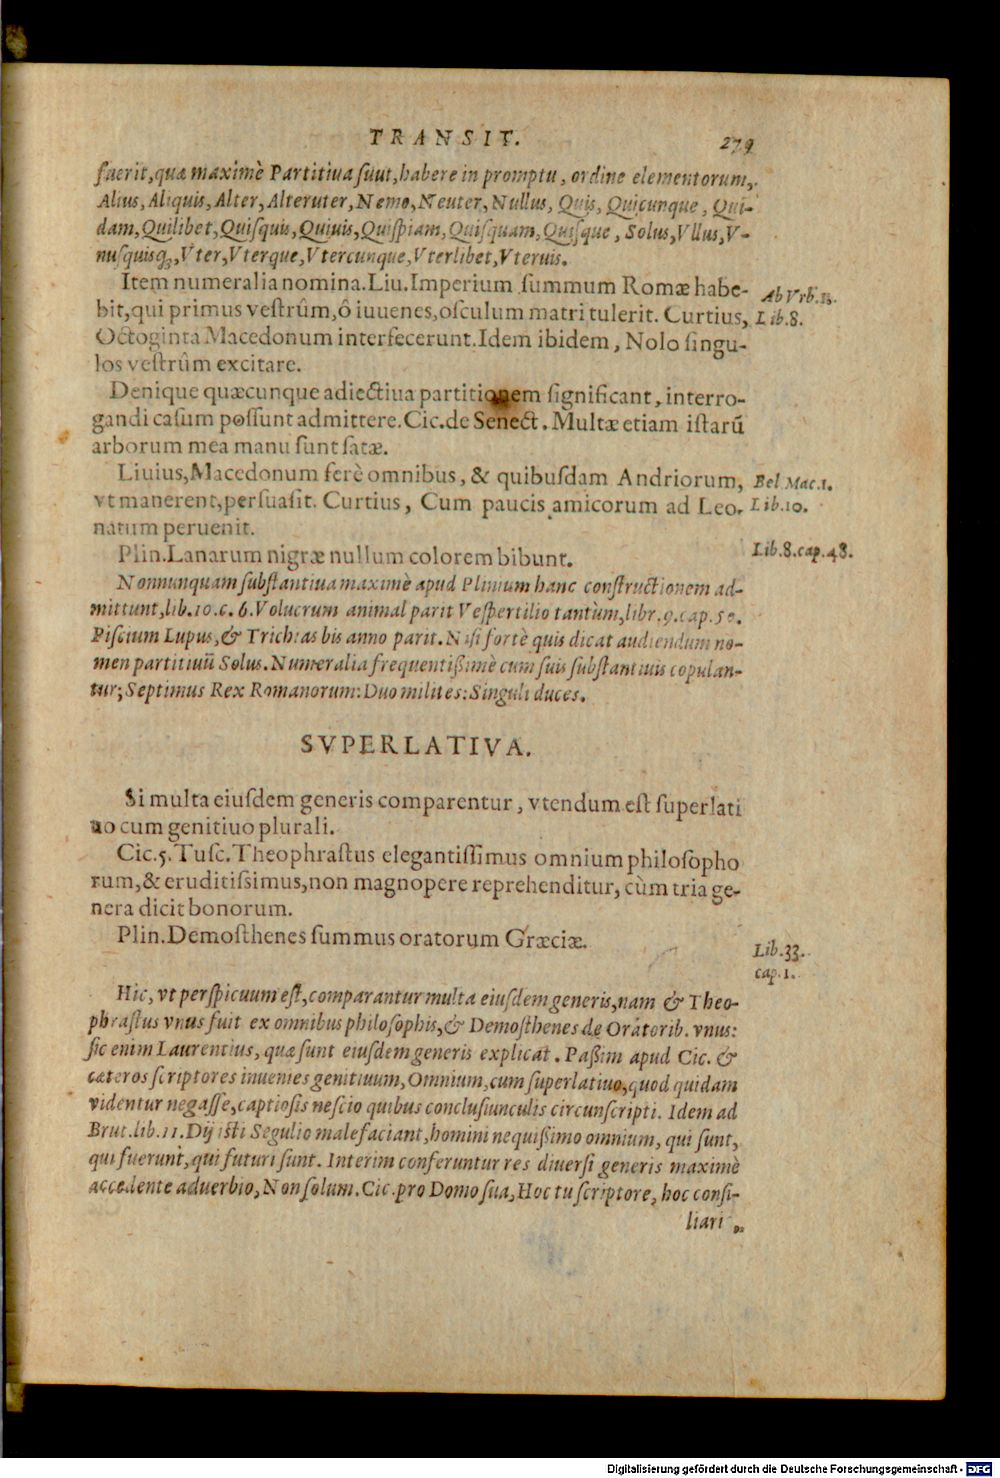 TRANSIT. 279
fuerit, quæ maximè Partitiua suut, habere in promptu, ordine elementorum,
Alius, Aliquis, Alter, Alteruter, Nemo, Neuter, Nullus, Quis, Quicunque, Qui-
dam, Quilibet, Quiſquis, Quiuis, Quiſpiam, Quiſquam, Quiſque, Solus, Vllus, V-
nuſquisq;, Vter, Vterque, Vtercunque, Vterlibet, Vteruis.
Item numeralia nomina. Liu. Imperium ſummum Romæ habe-
bit, qui primus veſtrûm, ô iuuenes, oſculum matri tulerit. Curtius,
Octoginta Macedonum interfecerunt. Idem ibidem, Nolo ſingu-
los veſtrûm excitare.
Ab Vrb.
Lib. 8.
Denique quæcunque adiectiua partitionem ſignificant, interro-
gandi caſum poſſunt admittere. Cic. de Senect. Multæ etiam iſtarũ
arborum mea manu ſunt ſatæ.
Liuius, Macedonum ferè omnibus, & quibuſdam Andriorum,
vt manerent, perſuaſit. Curtius, Cum paucis amicorum ad Leo-
natum peruenit.
Bel. Mac. 1.
Lib. 10.
Plin. Lanarum nigræ nullum colorem bibunt.
Lib. 8. cap. 48.
Nonnunquam ſubſtantiua maximè apud Plinium hanc conſtructionem ad-
mittunt, lib. 10. c. 6. Volucrum animal parit Veſpertilio tantùm, libr. 9. cap. 50.
Piſcium Lupus, & Trichias bis anno parit. Niſi fortè quis dicat audiendum no-
men partitiuũ Solus. Numeralia frequentißimè cum ſuis ſubſtantiuis copulan-
tur; Septimus Rex Romanorum: Duo milites: Singuli duces.
SVPERLATIVA.
Si multa eiuſdem generis comparentur, vtendum eſt ſuperlati
uo cum genitiuo plurali.
Cic. 5. Tuſc. Theophraſtus elegantiſſimus omnium philoſopho
rum, & eruditiſsimus, non magnopere reprehenditur, cùm tria ge-
nera dicit bonorum.
Plin. Demoſthenes ſummus oratorum Græciæ.
Lib. 33.
cap. 1.
Hic, vt perſpicuum eſt, comparantur multa eiuſdem generis, nam & Theo-
phraſtus vnus fuit ex omnibus philoſophis, & Demoſthenes de Oratorib. vnus:
ſic enim Laurentius, quæ ſunt eiuſdem generis explicat. Paßim apud Cic. &
cæteros ſcriptores inuenies genitiuum, Omnium, cum ſuperlatiuo, quod quidam
videntur negaſſe, captioſis neſcio quibus concluſiunculis circunſcripti. Idem ad
Brut. lib. 11. Dij iſti Segulio malefaciant, homini nequißimo omnium, qui ſunt,
qui fuerunt, qui futuri ſunt. Interim conferuntur res diuerſi generis maximè
accedente aduerbio, Non ſolum. Cic. pro Domo ſua, Hoc tu ſcriptore, hoc conſi-
liari
Digitalisierung gefördert durch die Deutsche Forschungsgemeinschaft - DFG